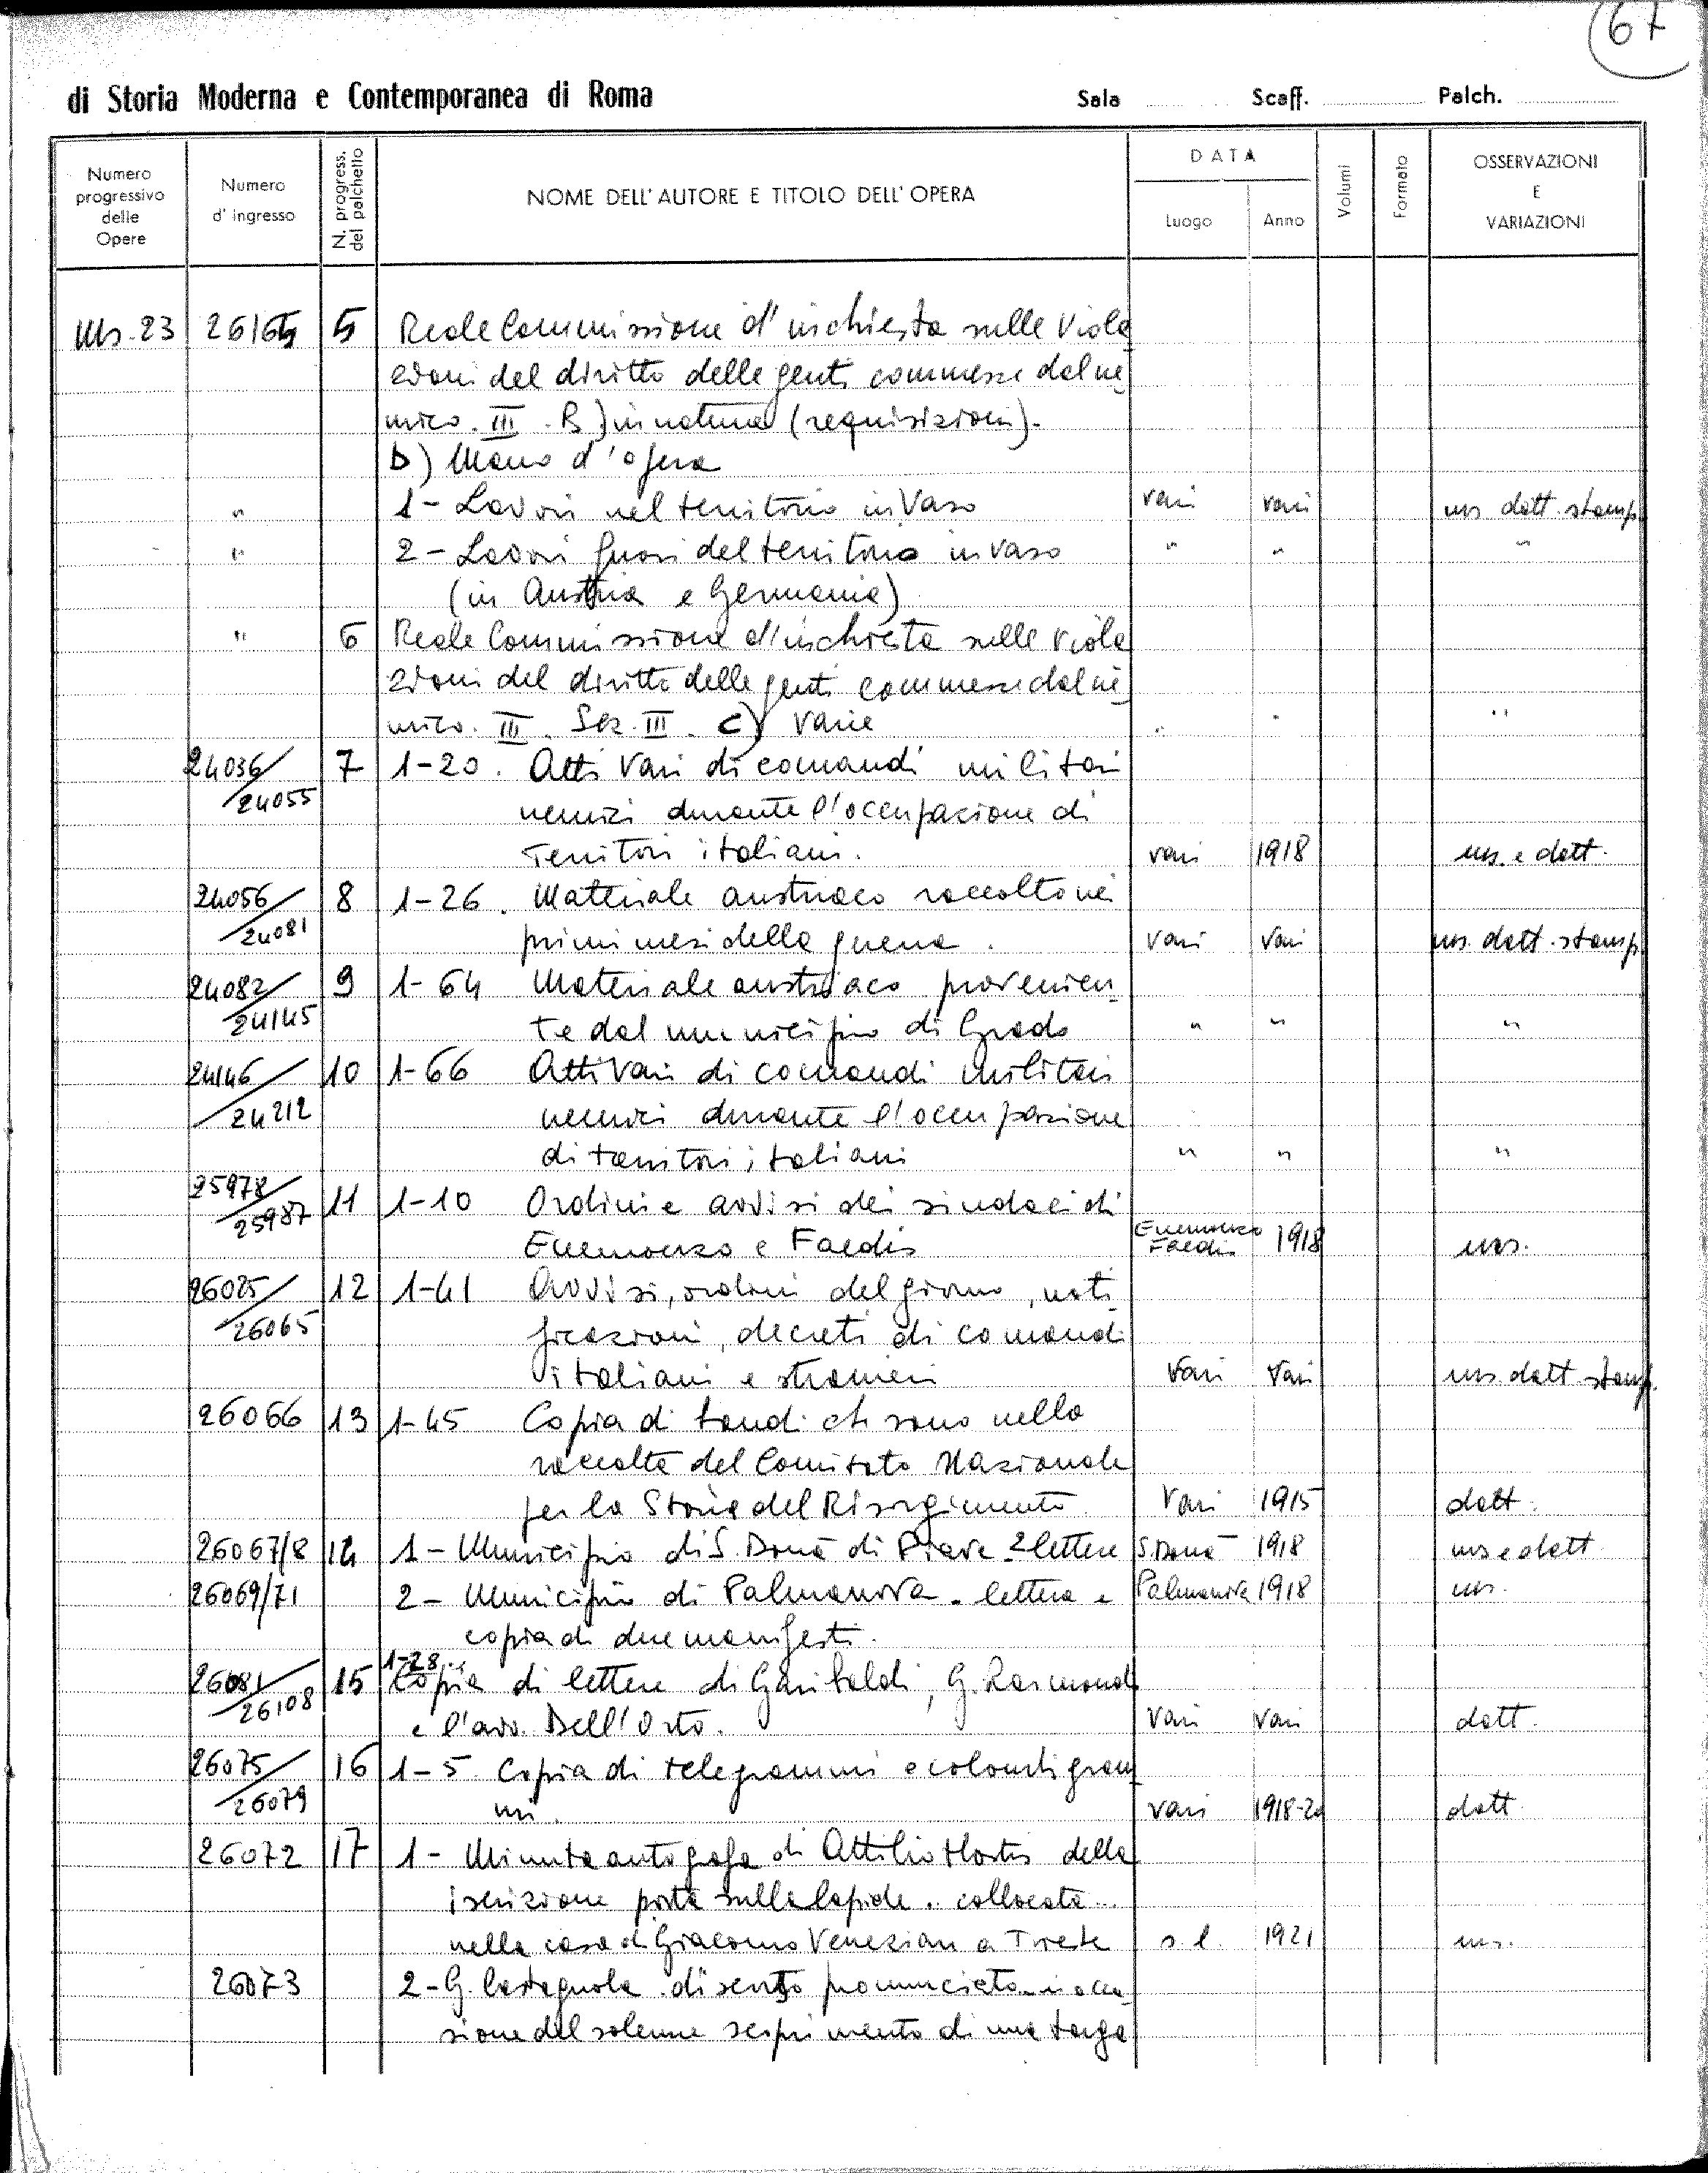 67
di Storia Moderna e Contemporanea di Roma Sala Scaff. Palch.
Numero progressivo delle Opere
Numero d'ingresso
N. progress. del palchetto
NOME DELL' AUTORE E TITOLO DELL' OPERA
DATA
Luogo Anno
Volumi
Formato
OSSERVAZIONI E VARIAZIONI
Ms. 23 5 Reale Commissione d'inchiesta sulle viola
zioni del diritto delle genti commesse dal ne
mico. III. B) in natura (requisizioni).
b) Mano d'opera
" 1- Lavori nel territorio invaso vari vari ms datt. stamp.
" 2- Lavori fuori del territorio invaso " " "
(in Austria e Germania)
" 6 Reale Commissione d'inchiesta sulle viola
zioni del diritto delle genti commesse dal ne
mico. III. Sez. III. C) Varie " " "
24036/ 7 1-20. Atti vari di comandi militari
24055 nemici durante l'occupazione di
territori italiani. vari 1918 ms. e datt.
24056/ 8 1-26. Materiale austriaco raccolto nei
24081 primi mesi della guerra. vari vari ms. datt. stamp.
24082/ 9 1-64 Materiale austriaco provenien
24145 te dal municipio di Grado " " "
24146/ 10 1-66 Atti vari di comandi militari
24212 nemici durante l'occupazione
di territori italiani " " "
25978/ 11 1-10 Ordini e avvisi dei sindaci di
25987 Enemonzo e Faedis Enemonzo Faedis 1918 ms.
26025/ 12 1-41 Avvisi, ordini del giorno, noti
26065 ficazioni, decreti di comandi
italiani e stranieri vari vari ms. datt. stamp.
26066 13 1-45 Copia di bandi ch sono nella
raccolta del Comitato Nazionale
per la Storia del Risorgimento vari 1915 datt.
26067/8 14 1- Municipio di S. Donà di Piave 2 lettere S. Donà 1918 ms e datt
26069/71 2- Municipio di Palmanova - lettera e Palmanova 1918 ms.
copia di due manifesti.
1-28
26081/ 15 Copia di lettere di Garibaldi, G. Raimondi
26108 e l'avv. Dell'Orto. vari vari datt.
26075/ 16 1-5 Copia di telegrammi e colombigram
26079 mi. vari 1918-20 datt.
26072 17 1- Minuta autografa di Attilio Hortis della
iscrizione posta sulla lapide collocata
nella casa di Giacomo Venezian a Trieste s.l. 1921 ms.
26073 2- G. Castagnola discorso pronunciato in occa
sione del solenne scoprimento di una targa